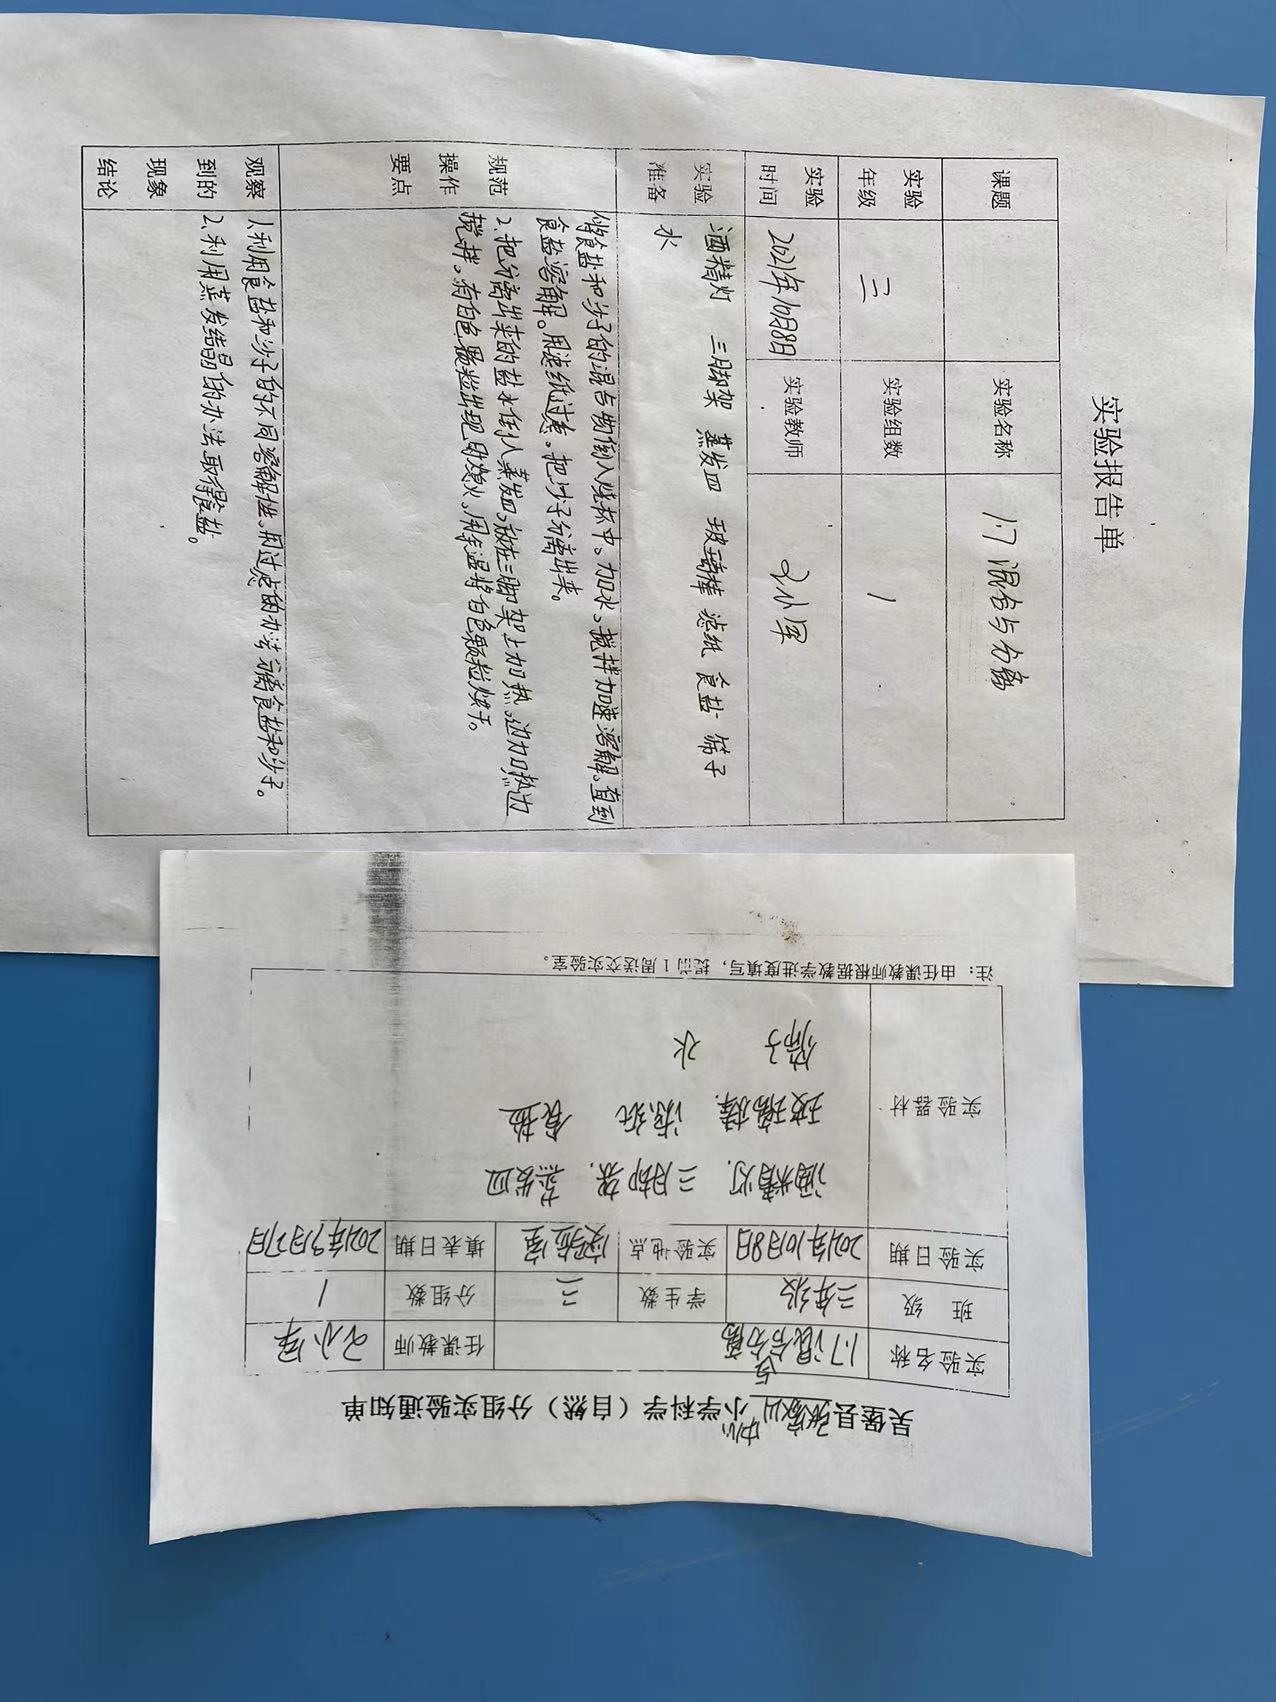 实验报告单
课题 实验名称 1.7 混合与分离
实验年级 三 实验组数 1
实验时间 2021年10月8日 实验教师
实验准备 酒精灯 三脚架 蒸发皿 玻璃棒 滤纸 食盐 筛子
水
规范操作要点 食盐和沙子的混合物倒入烧杯中。加水、搅拌加速溶解、直到
食盐溶解。用滤纸过滤。把沙子分离出来。
2、把分离出来的盐水倒入蒸发皿,放在三脚架上加热,边加热边
搅拌。有白色颗粒出现时熄火,用余温将白色颗粒烘干。
观察到的现象结论 1、利用食盐和沙子的不同溶解性、用过滤的办法分离食盐和沙子。
2、利用蒸发结晶的办法取得食盐。
吴堡县张家山中心小学科学(自然)分组实验通知单
实验名称 1.7混合与分离 任课教师
班 级 三年级 学生数 三 分组数 1
实验日期 2021年10月8日 实验地点 实验室 填表日期 2021年9月27日
实验器材 酒精灯. 三脚架. 蒸发皿
玻璃棒. 滤纸 食盐
筛子 水
注:由任课教师根据教学进度填写,提前1周送交实验室。